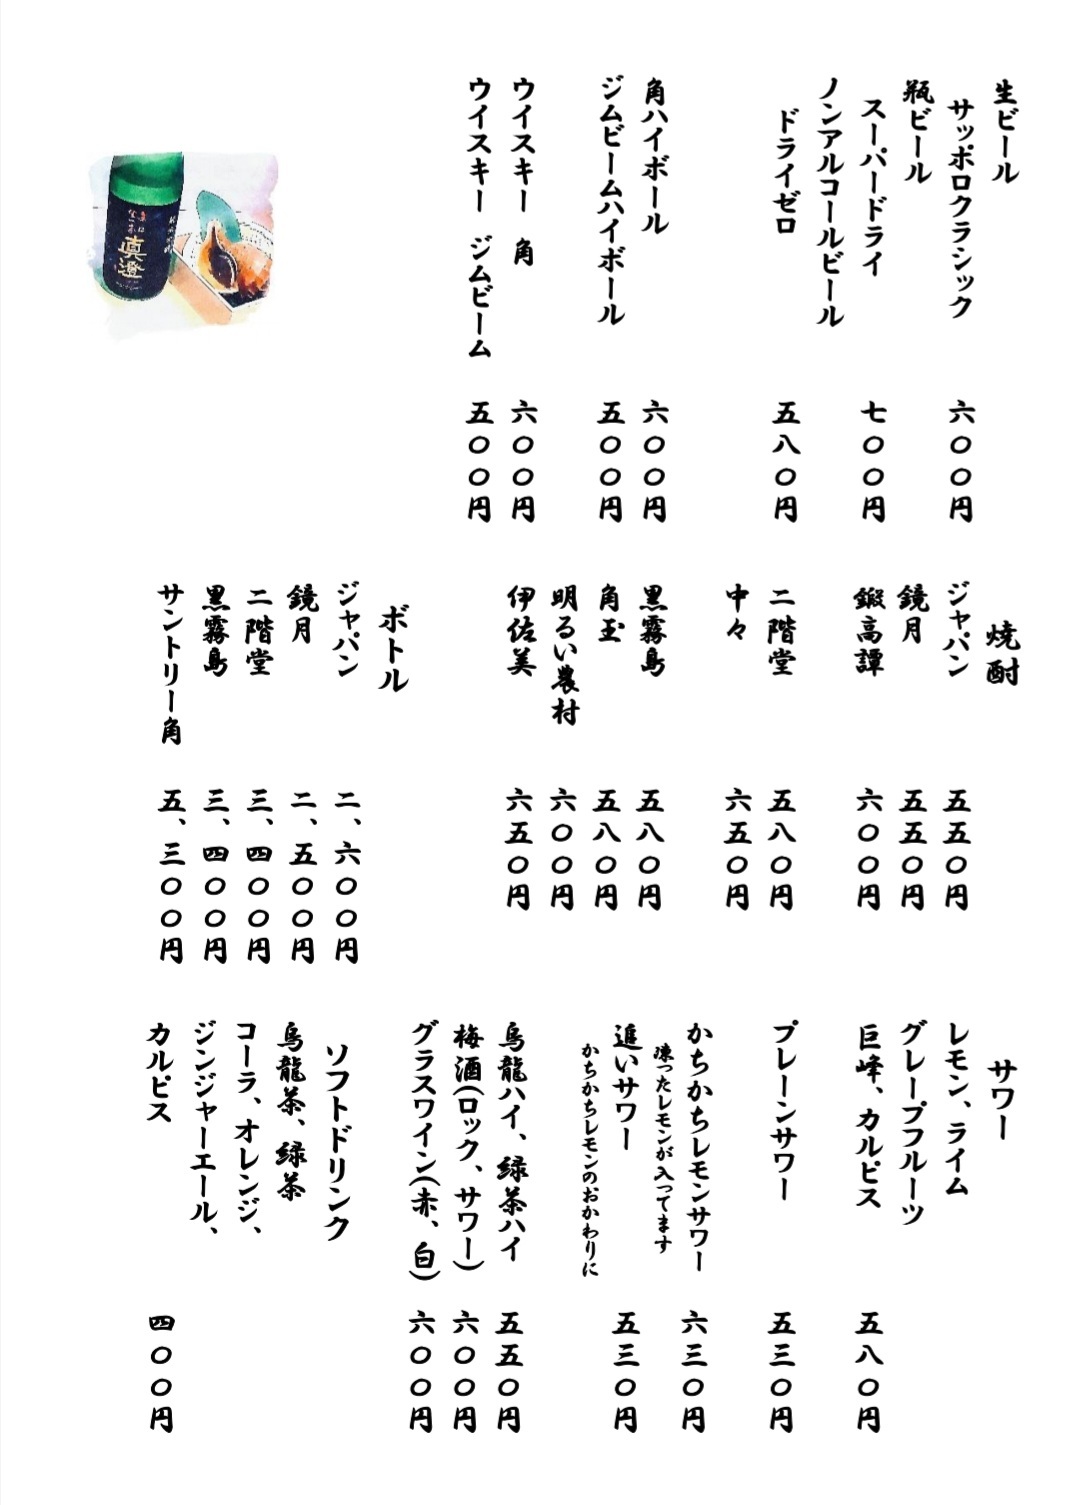 生ビール
サッポロクラシック 六〇〇円
瓶ビール
スーパードライ 七〇〇円
ノンアルコールビール
ドライゼロ 五八〇円
角ハイボール 六〇〇円
ジムビームハイボール 五〇〇円
ウイスキー 角 六〇〇円
ウイスキー ジムビーム 五〇〇円
真澄
焼酎
ジャパン 五五〇円
鏡月 五五〇円
鍛高譚 六〇〇円
二階堂 五八〇円
中々 六五〇円
黒霧島 五八〇円
角玉 五八〇円
明るい農村 六〇〇円
伊佐美 六五〇円
ボトル
ジャパン 二、六〇〇円
鏡月 二、五〇〇円
二階堂 三、四〇〇円
黒霧島 三、四〇〇円
サントリー角 五、三〇〇円
サワー
レモン、ライム
グレープフルーツ
巨峰、カルピス 五八〇円
プレーンサワー 五三〇円
かちかちレモンサワー 六三〇円
凍ったレモンが入ってます
追いサワー 五三〇円
かちかちレモンのおかわりに
烏龍ハイ、緑茶ハイ 五五〇円
梅酒(ロック、サワー) 六〇〇円
グラスワイン(赤、白) 六〇〇円
ソフトドリンク
烏龍茶、緑茶
コーラ、オレンジ、
ジンジャーエール、
カルピス 四〇〇円